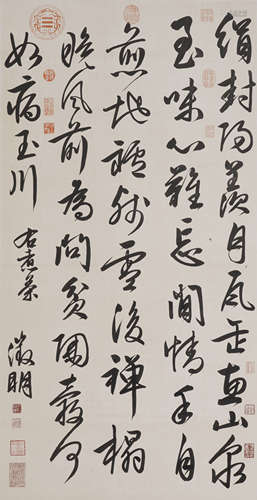 絹封陽羨月瓦缶惠山泉
至味心難忘閒情手自
煎地罏殘雪後禪榻
晚風前為問貧陶穀何
如病玉川
右煮茶
徵明